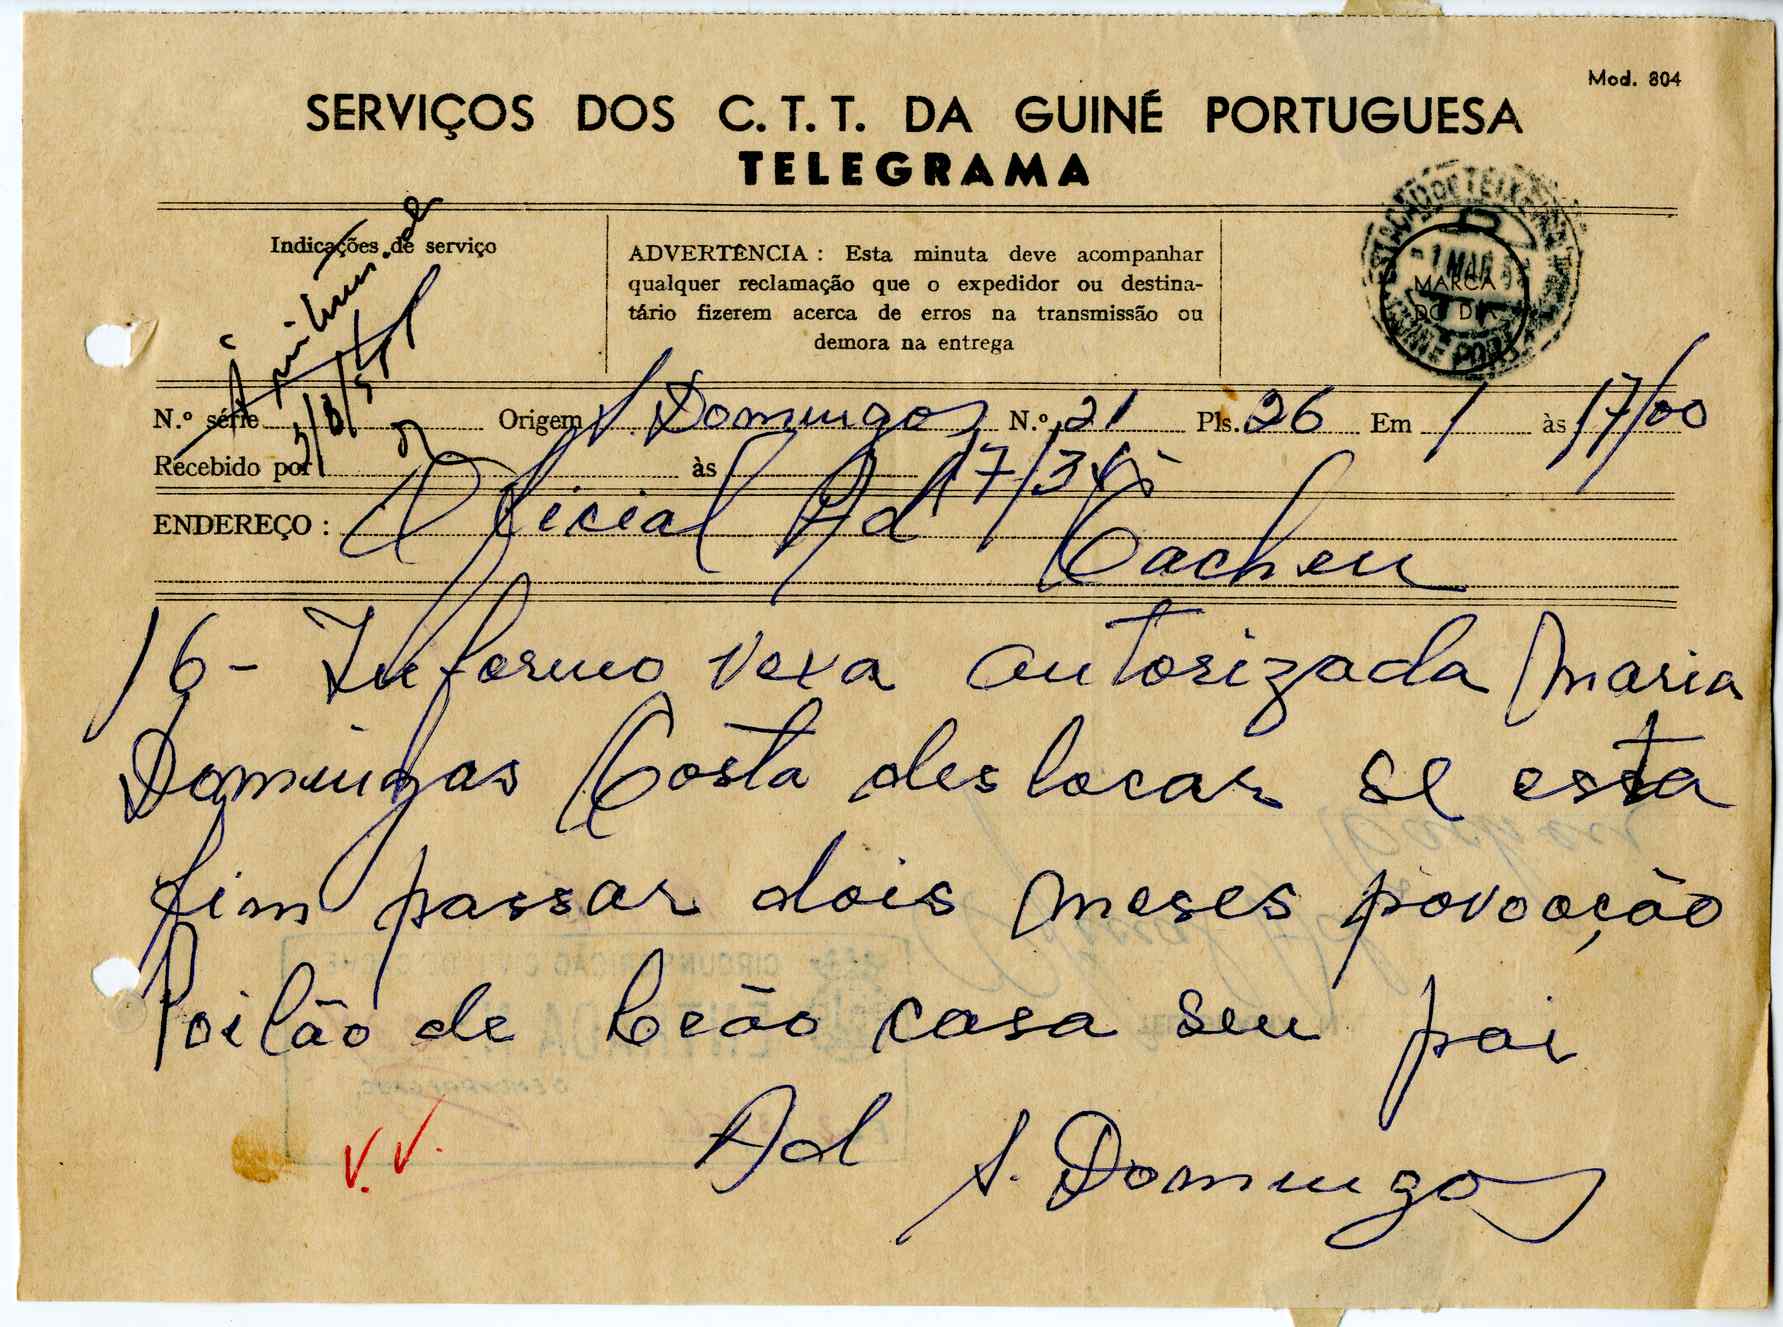 Mod. 804
SERVIÇOS DOS C. T. T. DA GUINÉ PORTUGUESA
TELEGRAMA
Indicações de serviço
ADVERTÊNCIA : Esta minuta deve acompanhar
qualquer reclamação que o expedidor ou destina-
tário fizerem acerca de erros na transmissão ou
demora na entrega
MARCA
DO DIA
N.º série Origem S. Domingos N.º 21 Pls. 26 Em 1 às 17/00
Recebido por às 17/35
ENDEREÇO : Oficial Ad
Cacheu
16 - Informo vexa autorizada Maria
Domingas Costa deslocar se esta
fim passar dois meses povoação
Poilão de Leão casa seu pai
V.V.
Ad S. Domingos